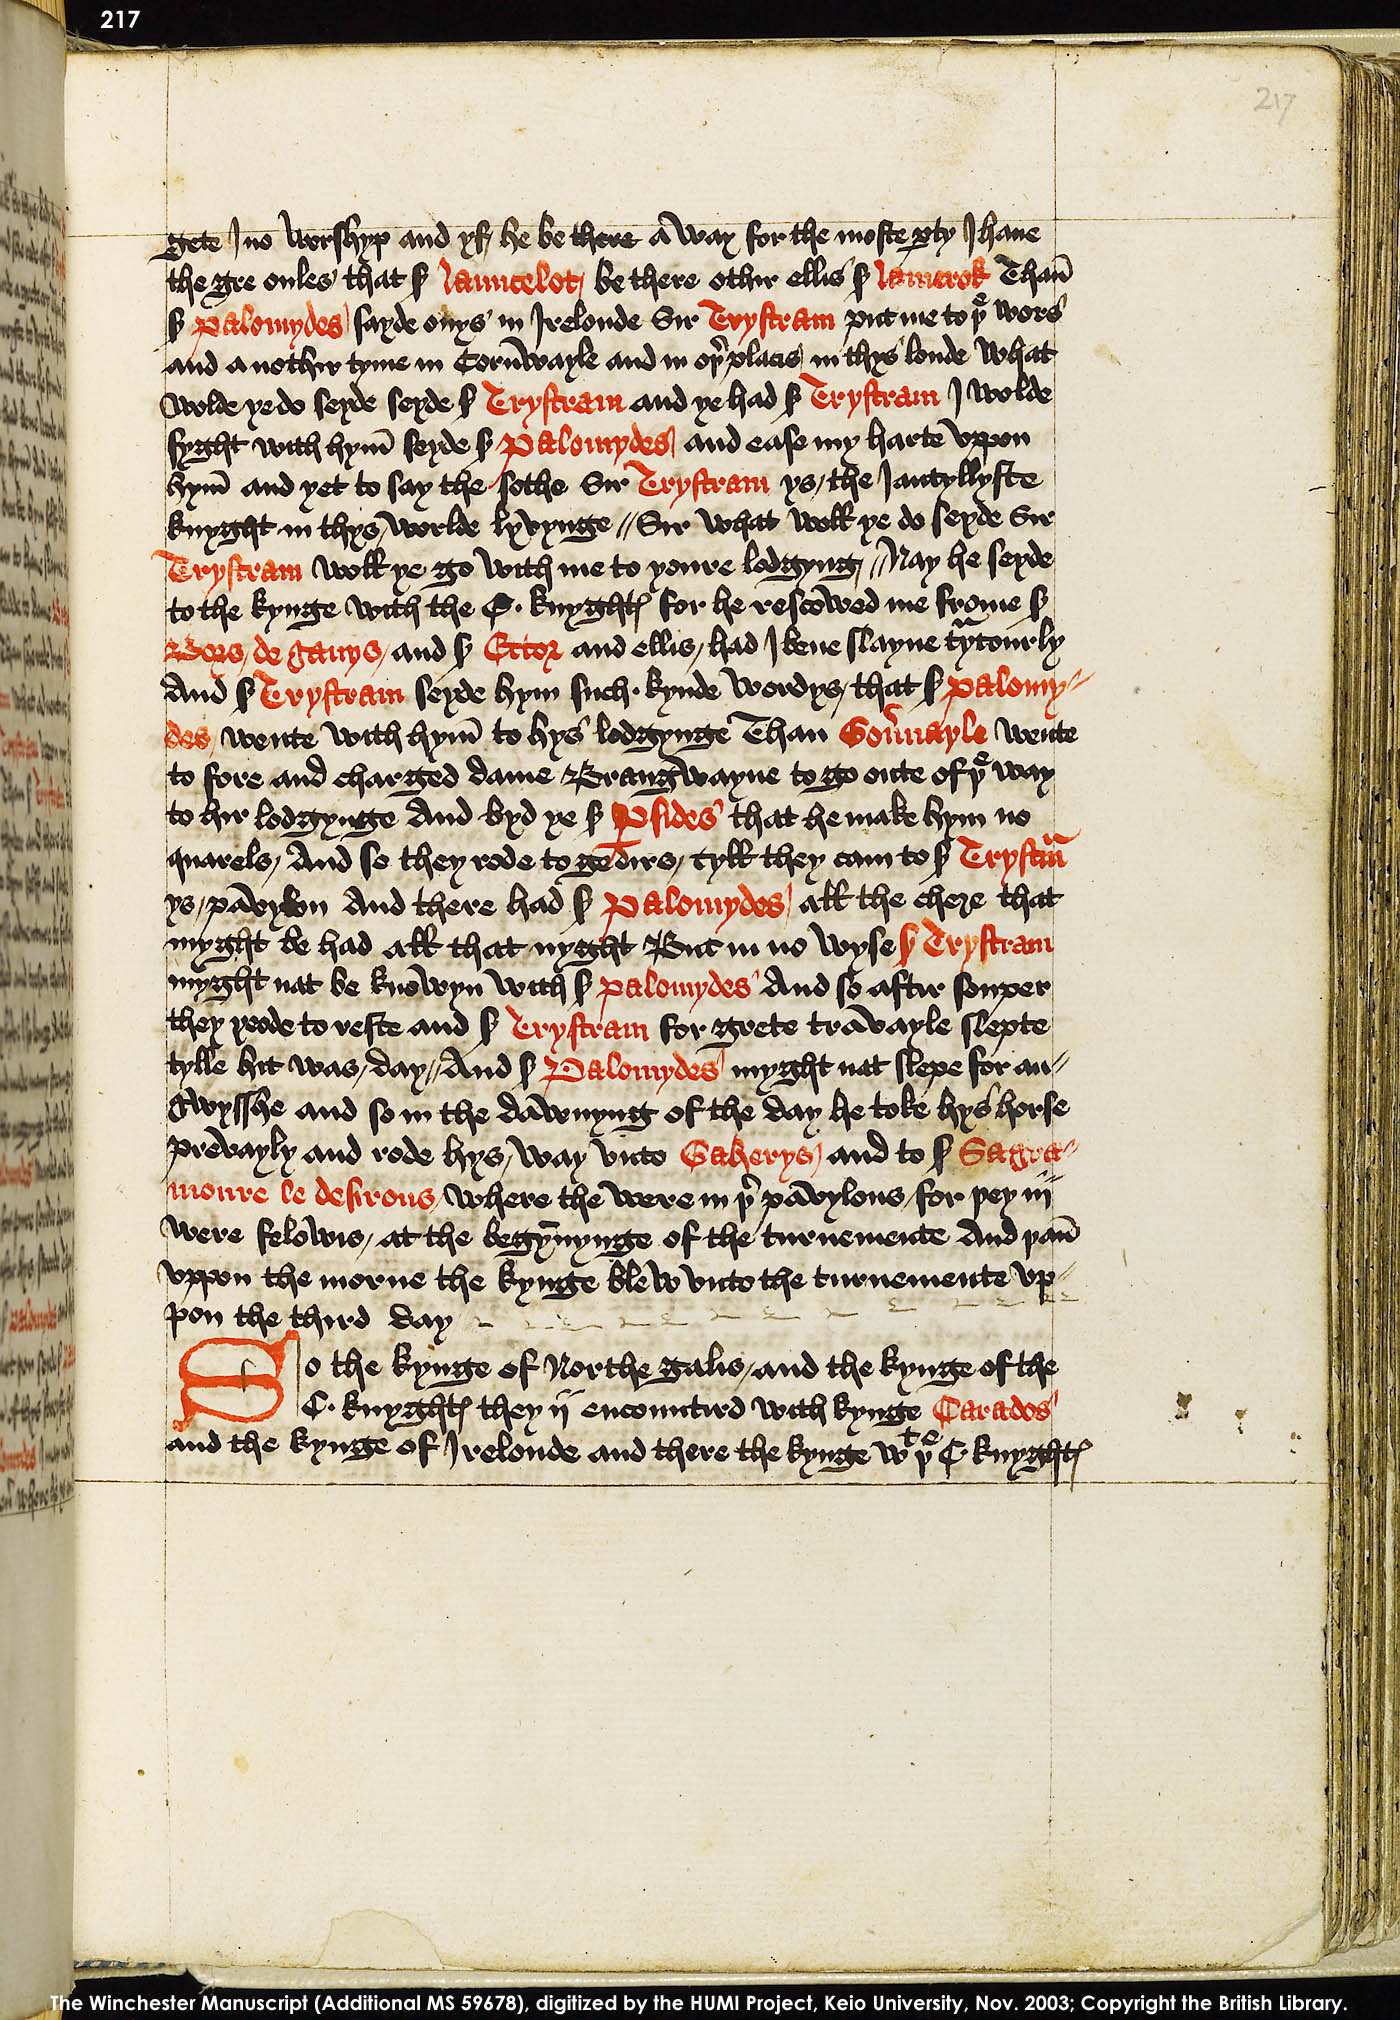 217
217
gete I no worshyp and yf he be there a way for the moste pty I haue
the gre onles that s Launcelot be there othir ellis s Lamerok Than̄
s Palomydes sayde onys in Irelonde Sir Trystram put me to þe wors
and a nothir tyme in Cornwayle and in oþr placis in thys londe What
wolde ye do seyde seyde s Trystram and ye had s Trystram I wolde
fyght with hym̄ seyde s Palomydes and ease my harte vppon
hym̄ and yet to say the sothe Sir Trystram ys the Jantyllyste
knyght in thys worlde lyvynge // Sir what woll ye do seyde Sir
Trystram woll ye go with me to youre lodgyng // Nay he seyde
to the kynge with the C. knyghtes for he rescowed me frome s
Bors de ganys and s Ector and ellis had I bene slayne traytourly
And s Trystram seyde hym such kynde wordys that s Palomy-
des wente with hym̄ to hys lodgynge Than Gou'nayle wente
to fore and charged dame Brangwayne to go oute of þe way
to hir lodgynge And byd ye s Psides that he make hym no
quarels And so they rode to gedirs tyll they cam to s Trystrm
ys pavylon And there had s Palomydes all the chere that
myght be had all that nyght But in no wyse s Trystram
myght nat be knowyn with s Palomydes And so aftir souper
they yeode to reste and s Trystram for grete travayle slepte
tylle hit was day // And s Palomydes myght nat slepe for an-
gwysshe and so in the dawnyng of the day he toke hys horse
prevayly and rode hys way vnto Gaherys and to s Sagra-
moure le desirous where the were in þr pavylons for þey iij
were felowis at the begynnynge of the turnemente And þan̄
vppon the morne the kynge blew vnto the turnemente vp-
pon the third day
So the kynge of Northe galis and the kynge of the
C. knyghtes they ij encountird with kynge Carados
and the kynge of Irelonde and there the kynge wt þe C knyghtes
The Winchester Manuscript (Additional MS 59678), digitized by the HUMI Project, Keio University, Nov. 2003; Copyright the British Library.